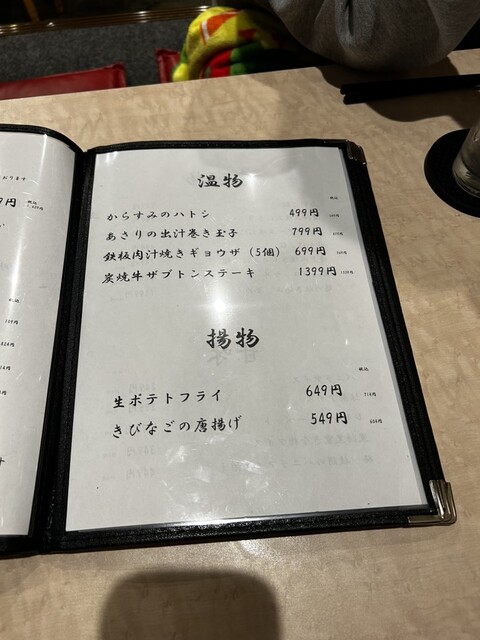 おります
温物
税込
からすみのハトシ 499円
あさりの出汁巻き玉子 799円
鉄板肉汁焼きギョウザ (5個) 699円
炭焼牛ザブトンステーキ 1399円
揚物
税込
生ポテトフライ 649円 714円
きびなごの唐揚げ 549円 604円